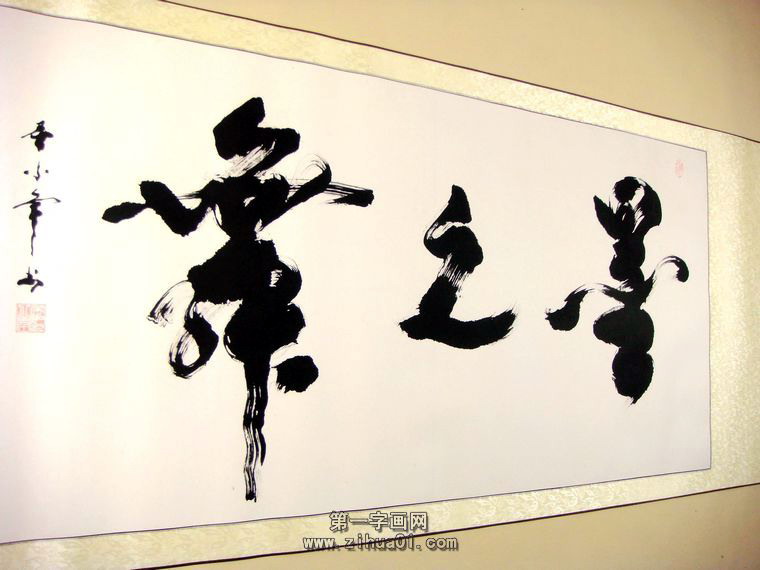 墨之舞
第一字画网
www.zihua01.com